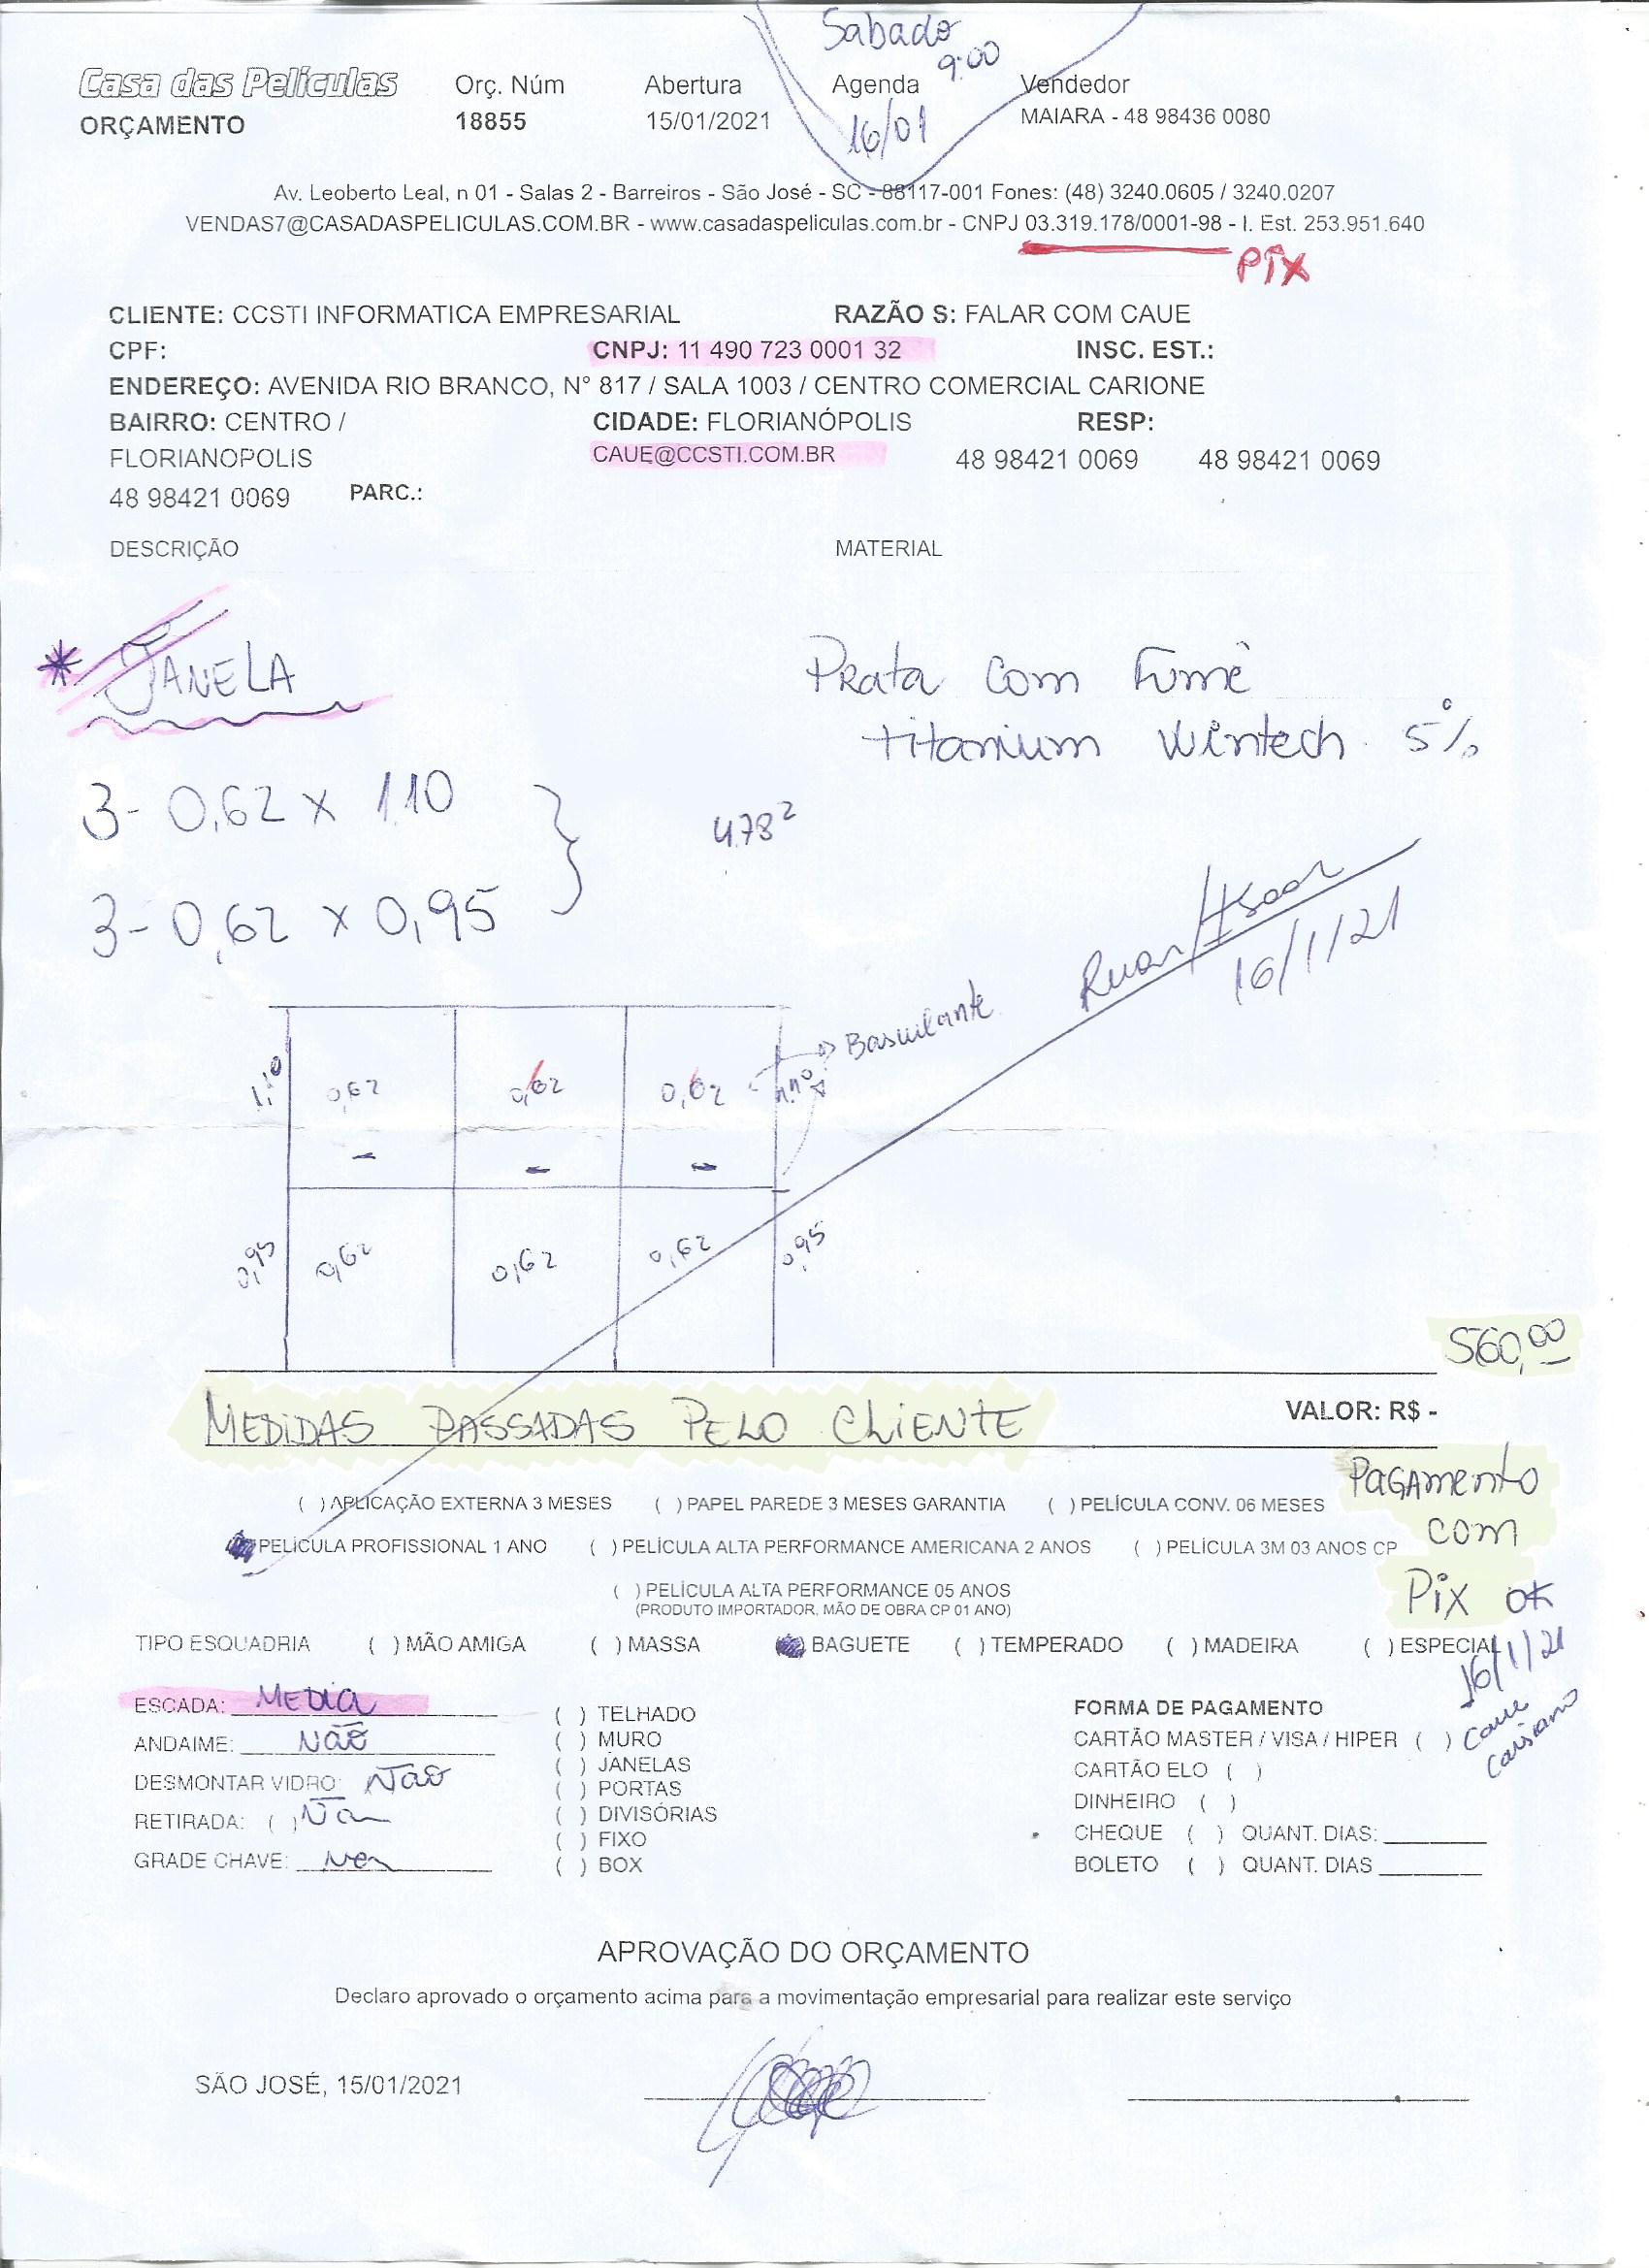 Sabado
9:00
Casa das Películas Orç. Núm Abertura Agenda Vendedor
ORÇAMENTO 18855 15/01/2021 16/01 MAIARA - 48 98436 0080
Av. Leoberto Leal, n 01 - Salas 2 - Barreiros - São José - SC - 88117-001 Fones: (48) 3240.0605 / 3240.0207
VENDAS7@CASADASPELICULAS.COM.BR - www.casadaspeliculas.com.br - CNPJ 03.319.178/0001-98 - I. Est. 253.951.640
PIX
CLIENTE: CCSTI INFORMATICA EMPRESARIAL RAZÃO S: FALAR COM CAUE
CPF: CNPJ: 11 490 723 0001 32 INSC. EST.:
ENDEREÇO: AVENIDA RIO BRANCO, N° 817 / SALA 1003 / CENTRO COMERCIAL CARIONE
BAIRRO: CENTRO / CIDADE: FLORIANÓPOLIS RESP:
FLORIANOPOLIS CAUE@CCSTI.COM.BR 48 98421 0069 48 98421 0069
48 98421 0069 PARC.:
DESCRIÇÃO MATERIAL
* JANELA Prata com Fumê
titanium Wintech 5%
3- 0,62 x 1,10 4,78²
3- 0,62 x 0,95
Ruan/
16/1/21
Basculante
1,10 0,62 0,62 0,62 1,10
0,95 0,62 0,62 0,62 0,95
560,00
MEDIDAS PASSADAS PELO CLIENTE VALOR: R$ -
Pagamento
com
Pix ok
( ) APLICAÇÃO EXTERNA 3 MESES ( ) PAPEL PAREDE 3 MESES GARANTIA ( ) PELÍCULA CONV. 06 MESES
PELÍCULA PROFISSIONAL 1 ANO ( ) PELÍCULA ALTA PERFORMANCE AMERICANA 2 ANOS ( ) PELÍCULA 3M 03 ANOS CP
( ) PELÍCULA ALTA PERFORMANCE 05 ANOS
(PRODUTO IMPORTADOR, MÃO DE OBRA CP 01 ANO)
TIPO ESQUADRIA ( ) MÃO AMIGA ( ) MASSA BAGUETE ( ) TEMPERADO ( ) MADEIRA ( ) ESPECIAL
16/1/21
Caue
ESCADA: MEDIA
ANDAIME: NÃO
DESMONTAR VIDRO: Não
RETIRADA: ( )
GRADE CHAVE:
( ) TELHADO
( ) MURO
( ) JANELAS
( ) PORTAS
( ) DIVISÓRIAS
( ) FIXO
( ) BOX
FORMA DE PAGAMENTO
CARTÃO MASTER / VISA / HIPER ( )
CARTÃO ELO ( )
DINHEIRO ( )
CHEQUE ( ) QUANT. DIAS:
BOLETO ( ) QUANT. DIAS
APROVAÇÃO DO ORÇAMENTO
Declaro aprovado o orçamento acima para a movimentação empresarial para realizar este serviço
SÃO JOSÉ, 15/01/2021